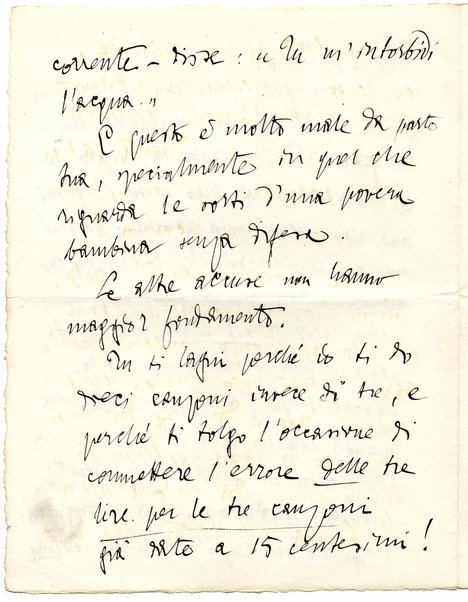 corrente – disse: "Tu m'intorbidi
l'acqua."
E questo è molto male da parte
tua, specialmente in quel che
riguarda le sorti d'una povera
bambina senza difesa.
Le altre accuse non hanno
maggior fondamento.
Tu ti lagni perché io ti do
dieci canzoni invece di tre, e
perché ti tolgo l'occasione di
commettere l'errore delle tre
lire per le tre canzoni
già date a 15 centesimi!